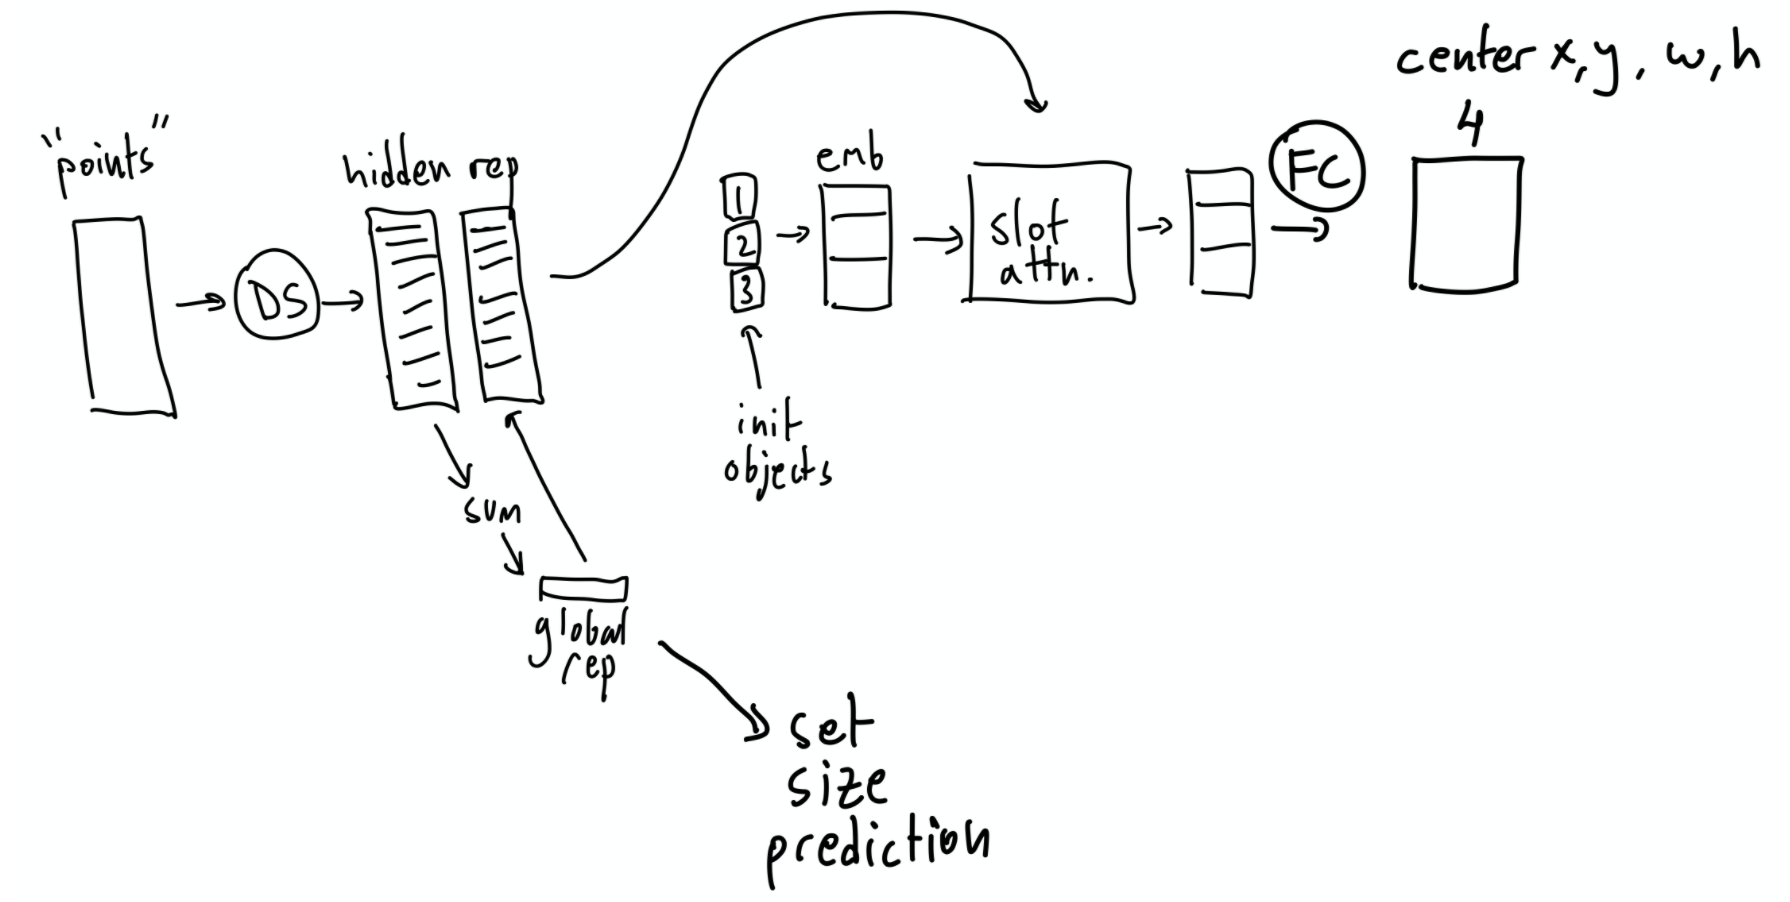 "points"
DS
hidden rep
sum
global
rep
set
size
prediction
1
2
3
init
objects
emb
slot
attn.
FC
center x,y, w,h
4